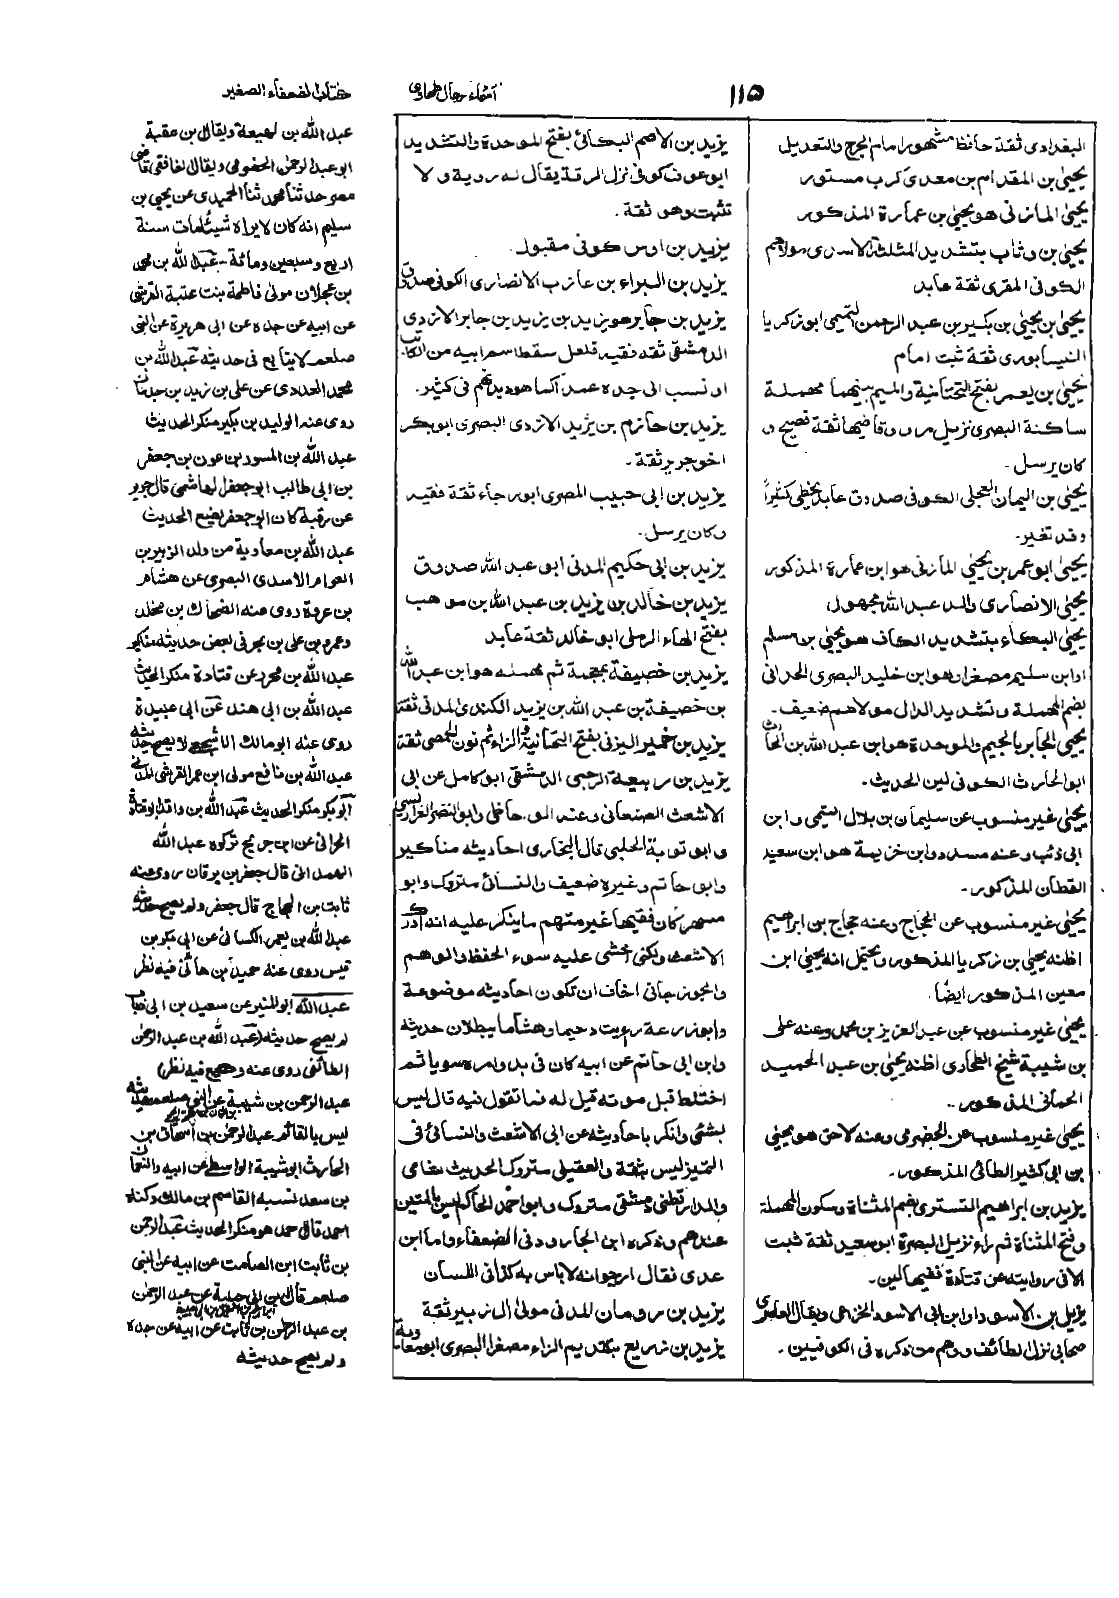 ١١٥
اسماء رجال طحاوي
كتاب الضعفاء الصغير
البغدادى ثقة حافظ مشهور امام الجرح والتعديل
يحيىٰ بن المقدام بن معدى كرب مستور
يحيىٰ المازنى هو يحيىٰ بن عمارة المذكور
يحيىٰ بن وثاب بتشديد المثلثة الاسدى مولاهم
الكوفى المقرى ثقة عابد
يحيىٰ بن يحيىٰ بن بكير بن عبد الرحمن التميمى ابو زكريا
النيسابورى ثقة ثبت امام
يحيىٰ بن يعمر بفتح التحتانية والميم بينهما مهملة
ساكنة البصرى نزيل مرو وقاضيها ثقة فصيح و
كان يرسل۔
يحيىٰ بن اليمان العجلى الكوفى صدوق عابد يخطى كثيرًا
وقد تغير۔
يحيىٰ ابو عمر بن يحيىٰ المازنى هو ابن عمارة المذكور
يحيىٰ الانصارى والد عبد الله مجهول
يحيىٰ البكاء بتشديد الكاف هو يحيىٰ بن مسلم
او ابن سليم مصغرا هو ابن خليد البصرى الحدانى
بضم المهملة وتشديد الدال مولاهم ضعيف۔
يحيىٰ الجابر بالجيم والموحدة هو ابن عبد الله بن الحارث
ابو الحارث الكوفى لين الحديث۔
يحيىٰ غير منسوب عن سليمان بن بلال التيمى وابن
ابى ذئب وعنه مسدد وابن خزيمة هو ابن سعيد
القطان المذكور۔
يحيىٰ غير منسوب عن الحجاج وعنه حجاج بن ابراهيم
اظنه يحيىٰ بن زكريا المذكور ويحتمل انه يحيىٰ ابن
معين المذكور ايضًا۔
يحيىٰ غير منسوب عن عبد العزيز بن محمد وعنه على
بن شيبة شيخ الطحاوى اظنه يحيىٰ بن عبد الحميد
الحمانى المذكور۔
يحيىٰ غير منسوب عن الحضرمى وعنه لاحق هو يحيىٰ
بن ابى كثير الطائى المذكور۔
يزيد بن ابراهيم التسترى بضم المثناة وسكون المهملة
وفتح المثناة ثم راء نزيل البصرة ابو سعيد ثقة ثبت
الا فى روايته عن قتادة ففيها لين۔
يزيد بن الاسود او ابن ابى الاسود الخزاعى ويقال العامرى
صحابى نزل الطائف ووهم من ذكره فى الكوفيين۔
يزيد بن الاصم البكائى بفتح الموحدة والتشديد
ابو عوف كوفى نزل الرقة يقال له روية ولا
تثبت وهو ثقة۔
يزيد بن اوس كوفى مقبول۔
يزيد بن البراء بن عازب الانصارى الكوفى صدوق
يزيد بن جابر هو يزيد بن يزيد بن جابر الازدى
الدمشقى ثقة فقيه فلعل سقط اسم ابيه من الكاتب
او نسب الى جده عمدا كما هو ديدنهم فى كثير۔
يزيد بن حازم بن يزيد الازدى البصرى ابو بكر
اخو جرير ثقة۔
يزيد بن ابى حبيب المصرى ابو رجاء ثقة فقيه
وكان يرسل۔
يزيد بن ابى حكيم المدنى ابو عبد الله صدوق
يزيد بن خالد بن يزيد بن عبد الله بن موهب
بفتح الهاء الرملى ابو خالد ثقة عابد
يزيد بن خصيفة بمعجمة ثم مهملة هو ابن عبد الله
بن خصيفة بن عبد الله بن يزيد الكندى المدنى ثقة
يزيد بن خمير اليزنى بفتح التحتانية والزاء ثم نون الحمصى ثقة
يزيد بن ربيعة الرحبى الدمشقى ابو كامل عن ابى
الاشعث الصنعانى وعنه الوحاظى وابو النضر الفراديسى
وابو توبة الحلبى قال البخارى احاديثه مناكير
وابو حاتم وغيره ضعيف والنسائى متروك وابو
مسهر كان فقيها غير متهم ما ينكر عليه انه ادرك
الاشعث ولكنى اخشى عليه سوء الحفظ والوهم
والجوزجانى اخاف ان تكون احاديثه موضوعة
وابو زرعة رءيت دحيما وهشاما يبطلان حديثه
وابن ابى حاتم عن ابيه كان فى بدو امره سويا ثم
اختلط قبل موته قيل له فما تقول فيه قال ليس
بشئى وانكر باحاديثه عن ابى الاشعث والنسائى فى
التميز ليس بثقة والعقيلى متروك الحديث شامى
والدارقطنى دمشقى متروك وابو احمد الحاكم ليس بالمتين
عندهم وذكره ابن الجارود فى الضعفاء واما ابن
عدى فقال ارجو انه لا باس به كذا فى اللسان
يزيد بن رومان المدنى مولى ال زبير ثقة
يزيد بن زريع بتقديم الزاء مصغرا البصرى ابو معاوية
عبد الله بن لهيعة ويقال بن عقبة
ابو عبد الرحمن الحضرمى ويقال الغافقى قاضى
مصر حدثنا محمد ثنا الحميدى عن يحيى بن
سليم انه كان لا يراه شيئا مات سنة
اربع وسبعين ومائة۔ عبد الله بن محمد
بن عجلان مولى فاطمة بنت عتبة القرشى
عن ابيه عن جده عن ابى هريرة عن النبى
صلعم لا يتابع فى حديثه عبد الله بن
محمد العدوى عن على بن زيد بن جدعان
روى عنه الوليد بن بكير منكر الحديث
عبد الله بن المسور بن عون بن جعفر
بن ابى طالب ابو جعفر الهاشمى قال جرير
عن رقبة كان ابو جعفر يضع الحديث
عبد الله بن معاوية من ولد الزبير بن
العوام الاسدى البصرى عن هشام
بن عروة روى عنه الضحاك بن مخلد
وعمرو بن على بن بحر فى بعض حديثه مناكير
عبد الله بن محرر عن قتادة منكر الحديث
عبد الله بن ابى هند عن ابى عبيدة
روى عنه ابو مالك الاشجعى لا يصح حديثه
عبد الله بن نافع مولى ابن عمر القرشى المدنى
ابو بكر منكر الحديث عبد الله بن واقد ابو قتادة
الحرانى عن ابن جريج تركوه عبد الله
الهمدانى قال جعفر بن برقان روى عنه
ثابت بن الحجاج قال جعفر ولم يصح حديثه
عبد الله بن يعمر الكسائى عن ابى بكر بن
قيس روى عنه حميد بن هانئ فيه نظر
عبد الله ابو المنير عن سعيد بن ابى ذباب
لم يصح حديثه (عبد الله بن عبد الرحمن
الطائفى روى عنه وكيع فيه نظر)
عبد الرحمن بن شيبة عن النبى صلعم حديثه
ليس بالقائم عبد الرحمن بن اسحاق بن
الحارث ابو شيبة الواسطى عن ابيه والنعمان
بن سعد نسبه القاسم بن مالك وكناه
احمد قال احمد هو منكر الحديث عبد الرحمن
بن ثابت ابن الصامت عن ابيه عن النبى
صلعم قال ابن ابى حبيبة عن عبد الرحمن
بن عبد الرحمن بن ثابت عن ابيه عن جده
ولم يصح حديثه